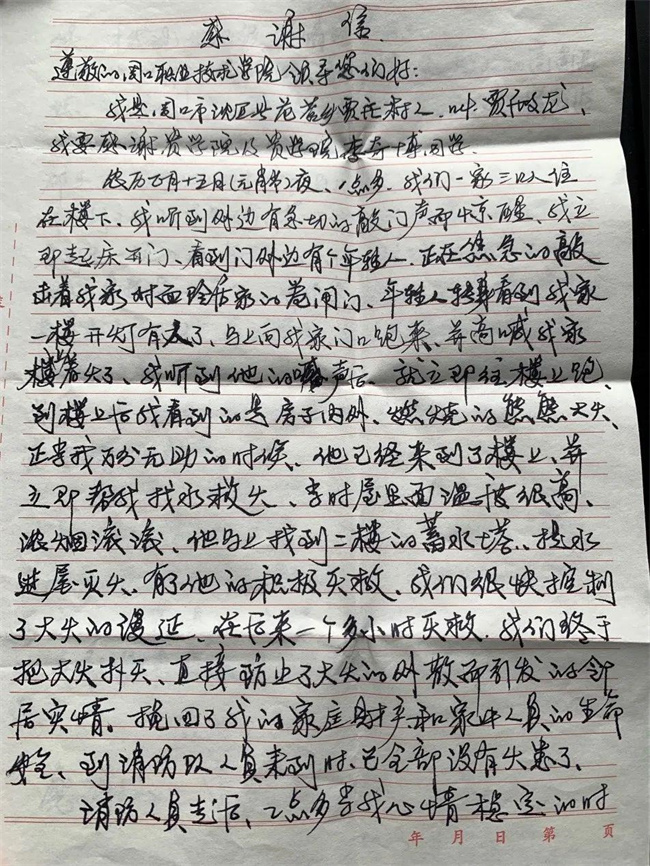 感谢信
尊敬的周口职业技术学院领导您们好：
我是周口市淮阳区葛店乡贾庄村人，叫贾
我要感谢贵学院及贵学院李奇博同学。
农历正月十五月(元宵节)夜、1点多，我们一家三口人住
在楼下，我听到外边有急切的敲门声而惊醒，我立
即起床开门、看到门外边有个年轻人，正在焦急的敲
击着我家对面给后家的卷闸门、年轻人转身看到我家
一楼开灯有人了，马上向我家门口跑来、并高喊我家
楼着火了、我听到他的喊声后，就立即往楼上跑，
到楼上后我看到的是房子内外、燃烧的熊熊大火，
正当我万分无助的时候、他已经来到了楼上、并
立即帮我找水救火、当时屋里面温度很高、
浓烟滚滚、他马上找到二楼的蓄水塔、提水
进屋灭火、有了他的积极灭救，我们很快控制
了大火的漫延，在后来一个多小时灭救，我们终于
把大火扑灭、直接防止了大火的外散而引发的邻
居灾情，挽回了我的家庭财产和家中人员的生命
安全、到消防队人员来到时、已全部没有火患了、
消防人员走后，2点多当我心情稳定的时
年 月 日 第 页